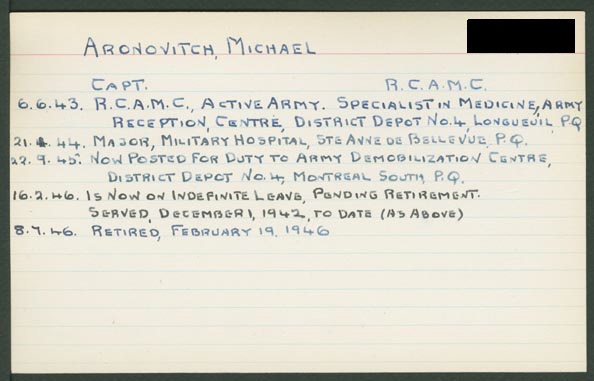 ARONOVITCH, MICHAEL
CAPT. R.C.A.M.C.
6.6.43. R.C.A.M.C., ACTIVE ARMY. SPECIALIST IN MEDICINE, ARMY
RECEPTION, CENTRE, DISTRICT DEPOT NO. 4, LONGUEUIL, PQ
44. MAJOR, MILITARY HOSPITAL, STE ANNE DE BELLEVUE, P.Q.
22.9.45. NOW POSTED FOR DUTY TO ARMY DEMOBILIZATION CENTRE,
DISTRICT DEPOT NO. 4, MONTREAL SOUTH, P.Q.
16.2.46. IS NOW ON INDEFINITE LEAVE, PENDING RETIREMENT.
SERVED, DECEMBER 1, 1942, TO DATE (AS ABOVE)
8.7.46. RETIRED, FEBRUARY 19, 1946